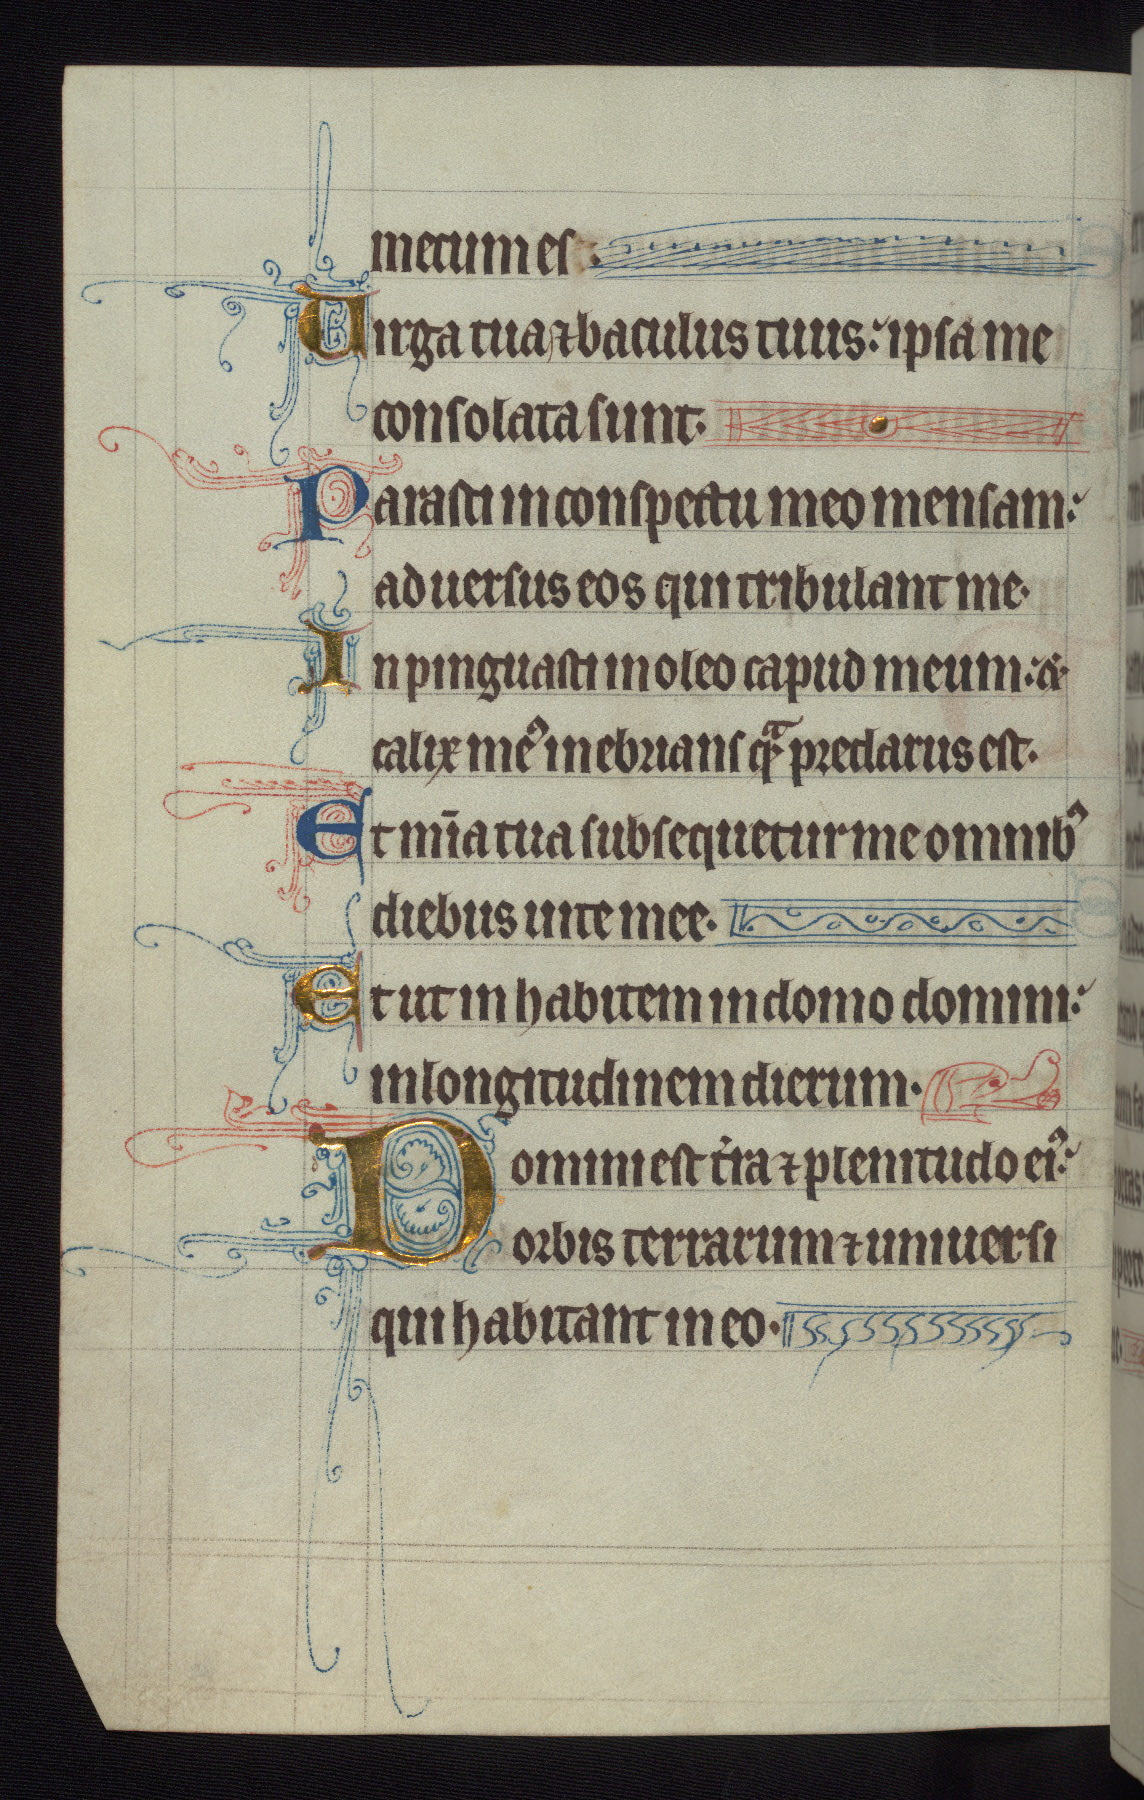 mecum es.
Uirga tua ⁊ baculus tuus: ipsa me
consolata sunt.
Parasti in conspectu meo mensam:
aduersus eos qui tribulant me.
Inpinguasti in oleo capud meum: &
calix meꝰ inebrians qͣ̄ preclarus est.
Et mīa tua subsequetur me omnibꝫ
diebus uite mee.
Et ut inhabitem in domo domini:
in longitudinem dierum.
Domini est t̄ra ⁊ plenitudo eiꝰ:
orbis terrarum ⁊ uniuersi
qui habitant in eo.